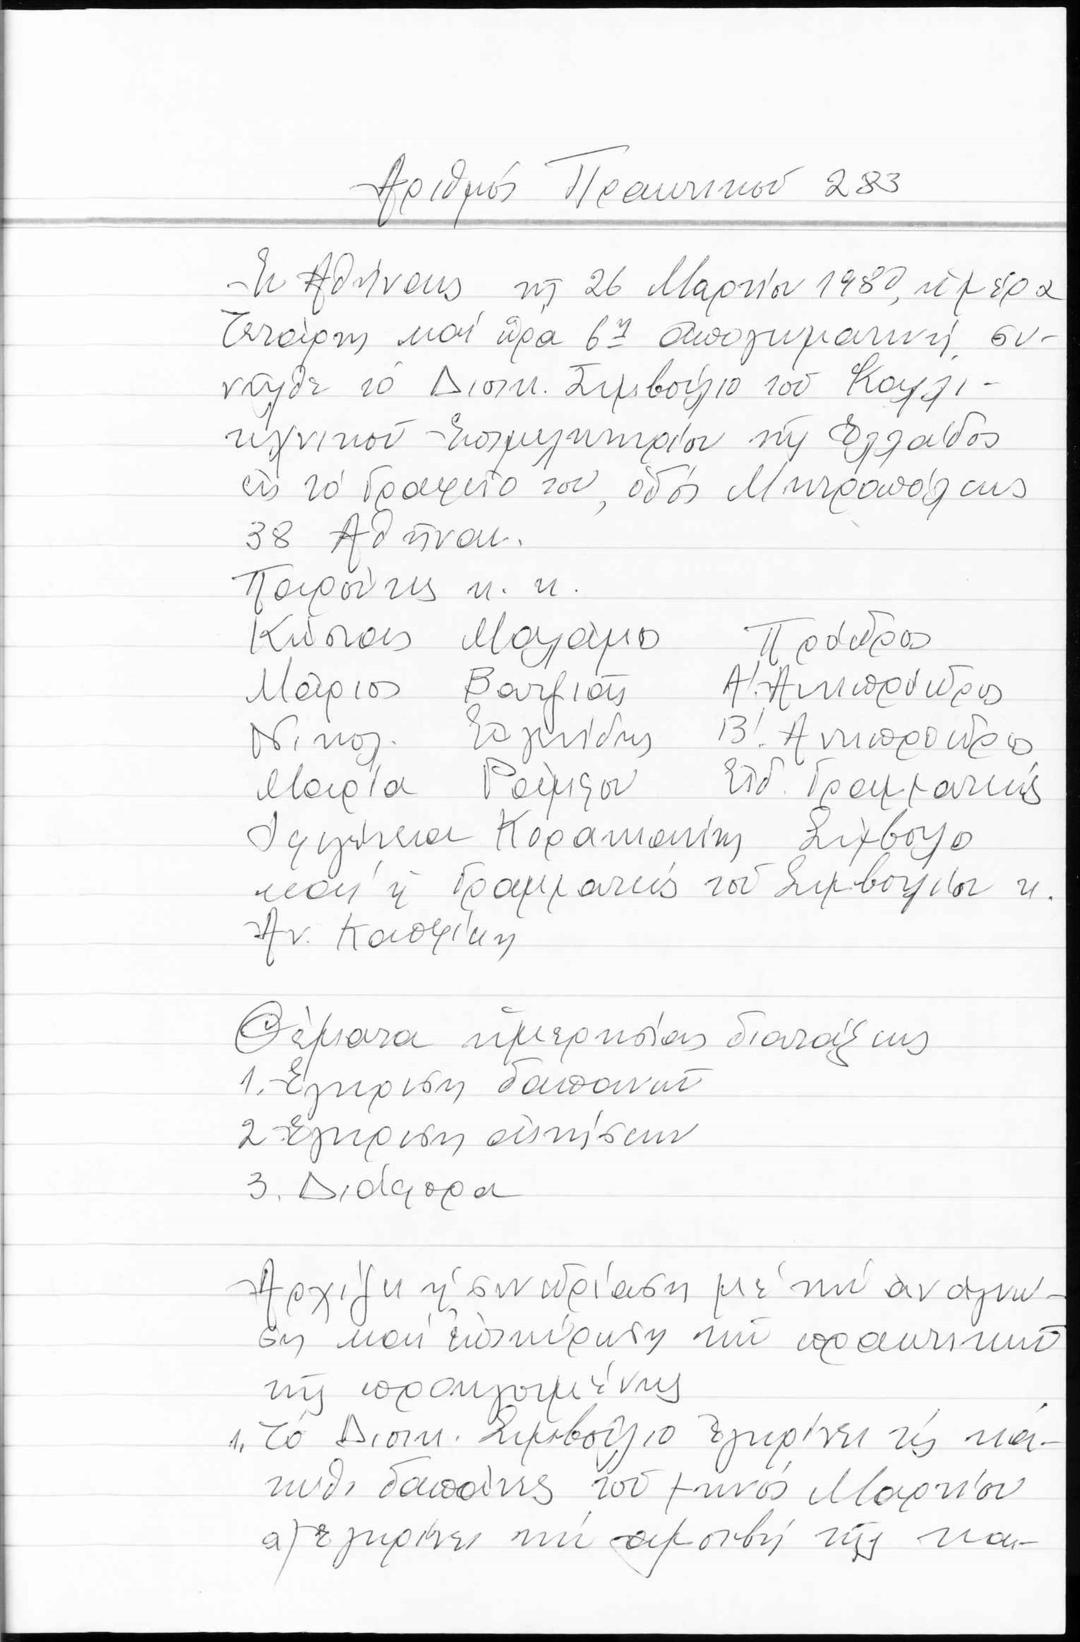 Ἀριθμός Πρακτικοῦ 283
Ἐν Ἀθήναις τῇ 26 Μαρτίου 1980, ἡμέρα
Τετάρτη καί ὥρα 6η ἀπογευματινή, συ-
νῆλθε τό Διοικ. Συμβούλιο τοῦ Καλλι-
τεχνικοῦ Ἐπιμελητηρίου τῆς Ἑλλάδος
εἰς τό Γραφεῖο του, ὁδός Μητροπόλεως
38 Ἀθῆναι.
Παρόντες κ. κ.
Κώστας Μαλάμος Πρόεδρος
Μάριος Βατζιᾶς Α'. Ἀντιπρόεδρος
Νικολ. Β'. Ἀντιπρόεδρος
Μαρία Εἰδ. Γραμματεύς
Ἰφιγένεια Σύμβουλο
καί ἡ Γραμματεύς τοῦ Συμβουλίου κ.
Ἀν.
Θέματα ἡμερησίας διατάξεως
1. Ἔγκριση δαπανῶν
2 Ἔγκριση αἰτήσεων
3. Διάφορα
Ἀρχίζει ἡ συνεδρίαση μέ τήν ἀνάγνω-
ση καί ἐπικύρωση τῶν πρακτικῶν
τῆς προηγουμένης
1. Τό Διοικ. Συμβούλιο ἐγκρίνει τίς κά-
τωθι δαπάνες τοῦ μηνός Μαρτίου
α) Ἐγκρίνει τήν ἀμοιβή τῆς κα-